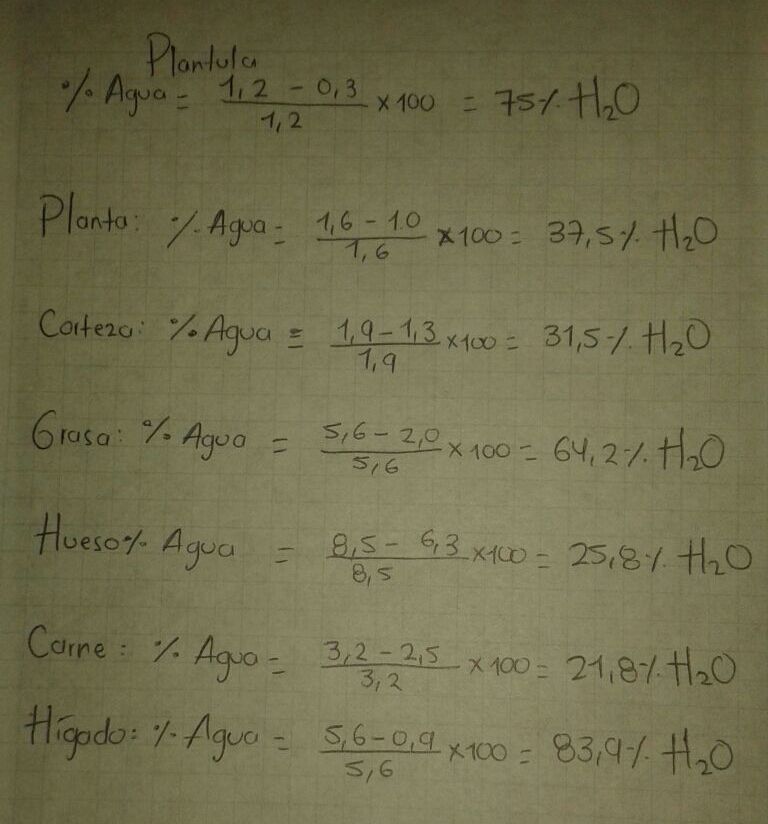 Plantula
% Agua = 1,2 - 0,3 / 1,2 x 100 = 75% H₂O
Planta: % Agua = 1,6 - 1.0 / 1,6 x100 = 37,5% H₂O
Corteza: % Agua = 1,9 - 1,3 / 1,9 x100 = 31,5% H₂O
Grasa: % Agua = 5,6 - 2,0 / 5,6 x 100 = 64,2% H₂O
Hueso % Agua = 8,5 - 6,3 / 8,5 x100 = 25,8% H₂O
Carne: % Agua = 3,2 - 2,5 / 3,2 x 100 = 21,8% H₂O
Hígado: % Agua = 5,6 - 0,9 / 5,6 x100 = 83,9% H₂O